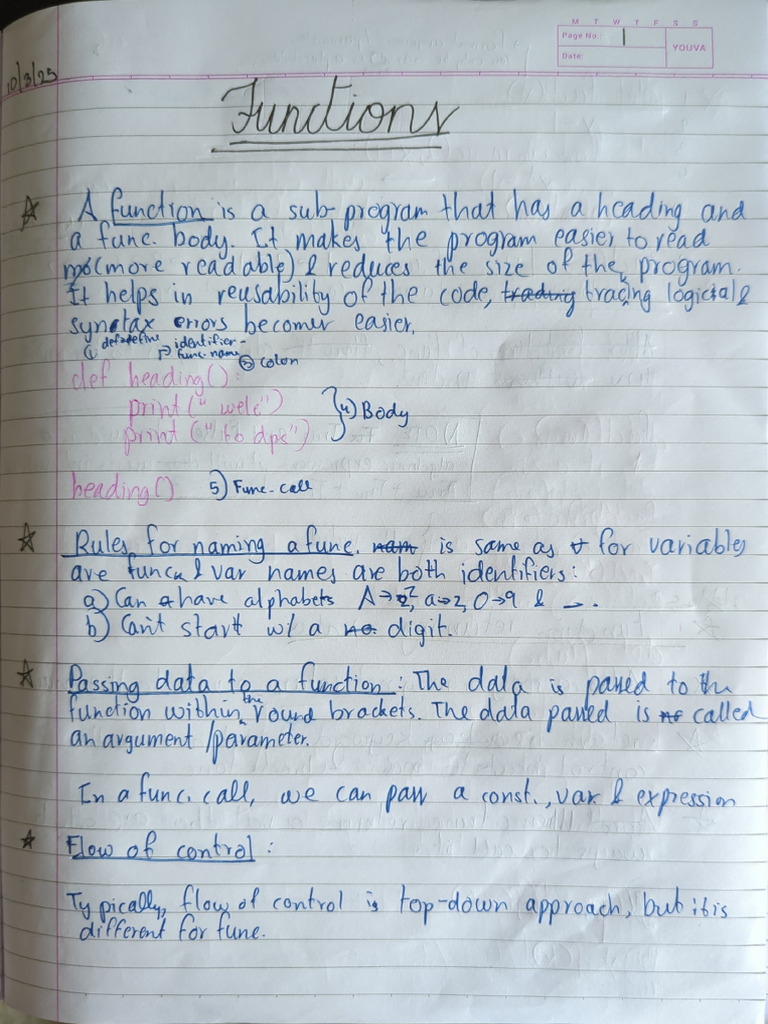 M T W T F S S
Page No.: 1
YOUVA
Date:
10/3/25
Functions
A function is a sub-program that has a heading and
a func. body. It makes the program easier to read
(more readable) & reduces the size of the program.
It helps in reusability of the code, tracing logical &
syntax errors becomes easier.
① def→define identifier-
func. name ③ Colon
def heading():
print("welc")
4) Body
print("to dps")
heading() 5) Func. call
Rules for naming a func. is same as for variables
are func. & var names are both identifiers:
a) Can have alphabets A→Z, a→z, 0→9 & _.
b) Can't start w/ a digit.
Passing data to a function: The data is passed to the
function within the round brackets. The data passed is called
an argument/parameter.
In a func. call, we can pass a const., var & expression
Flow of control:
Typically, flow of control is top-down approach, but it is
different for func.